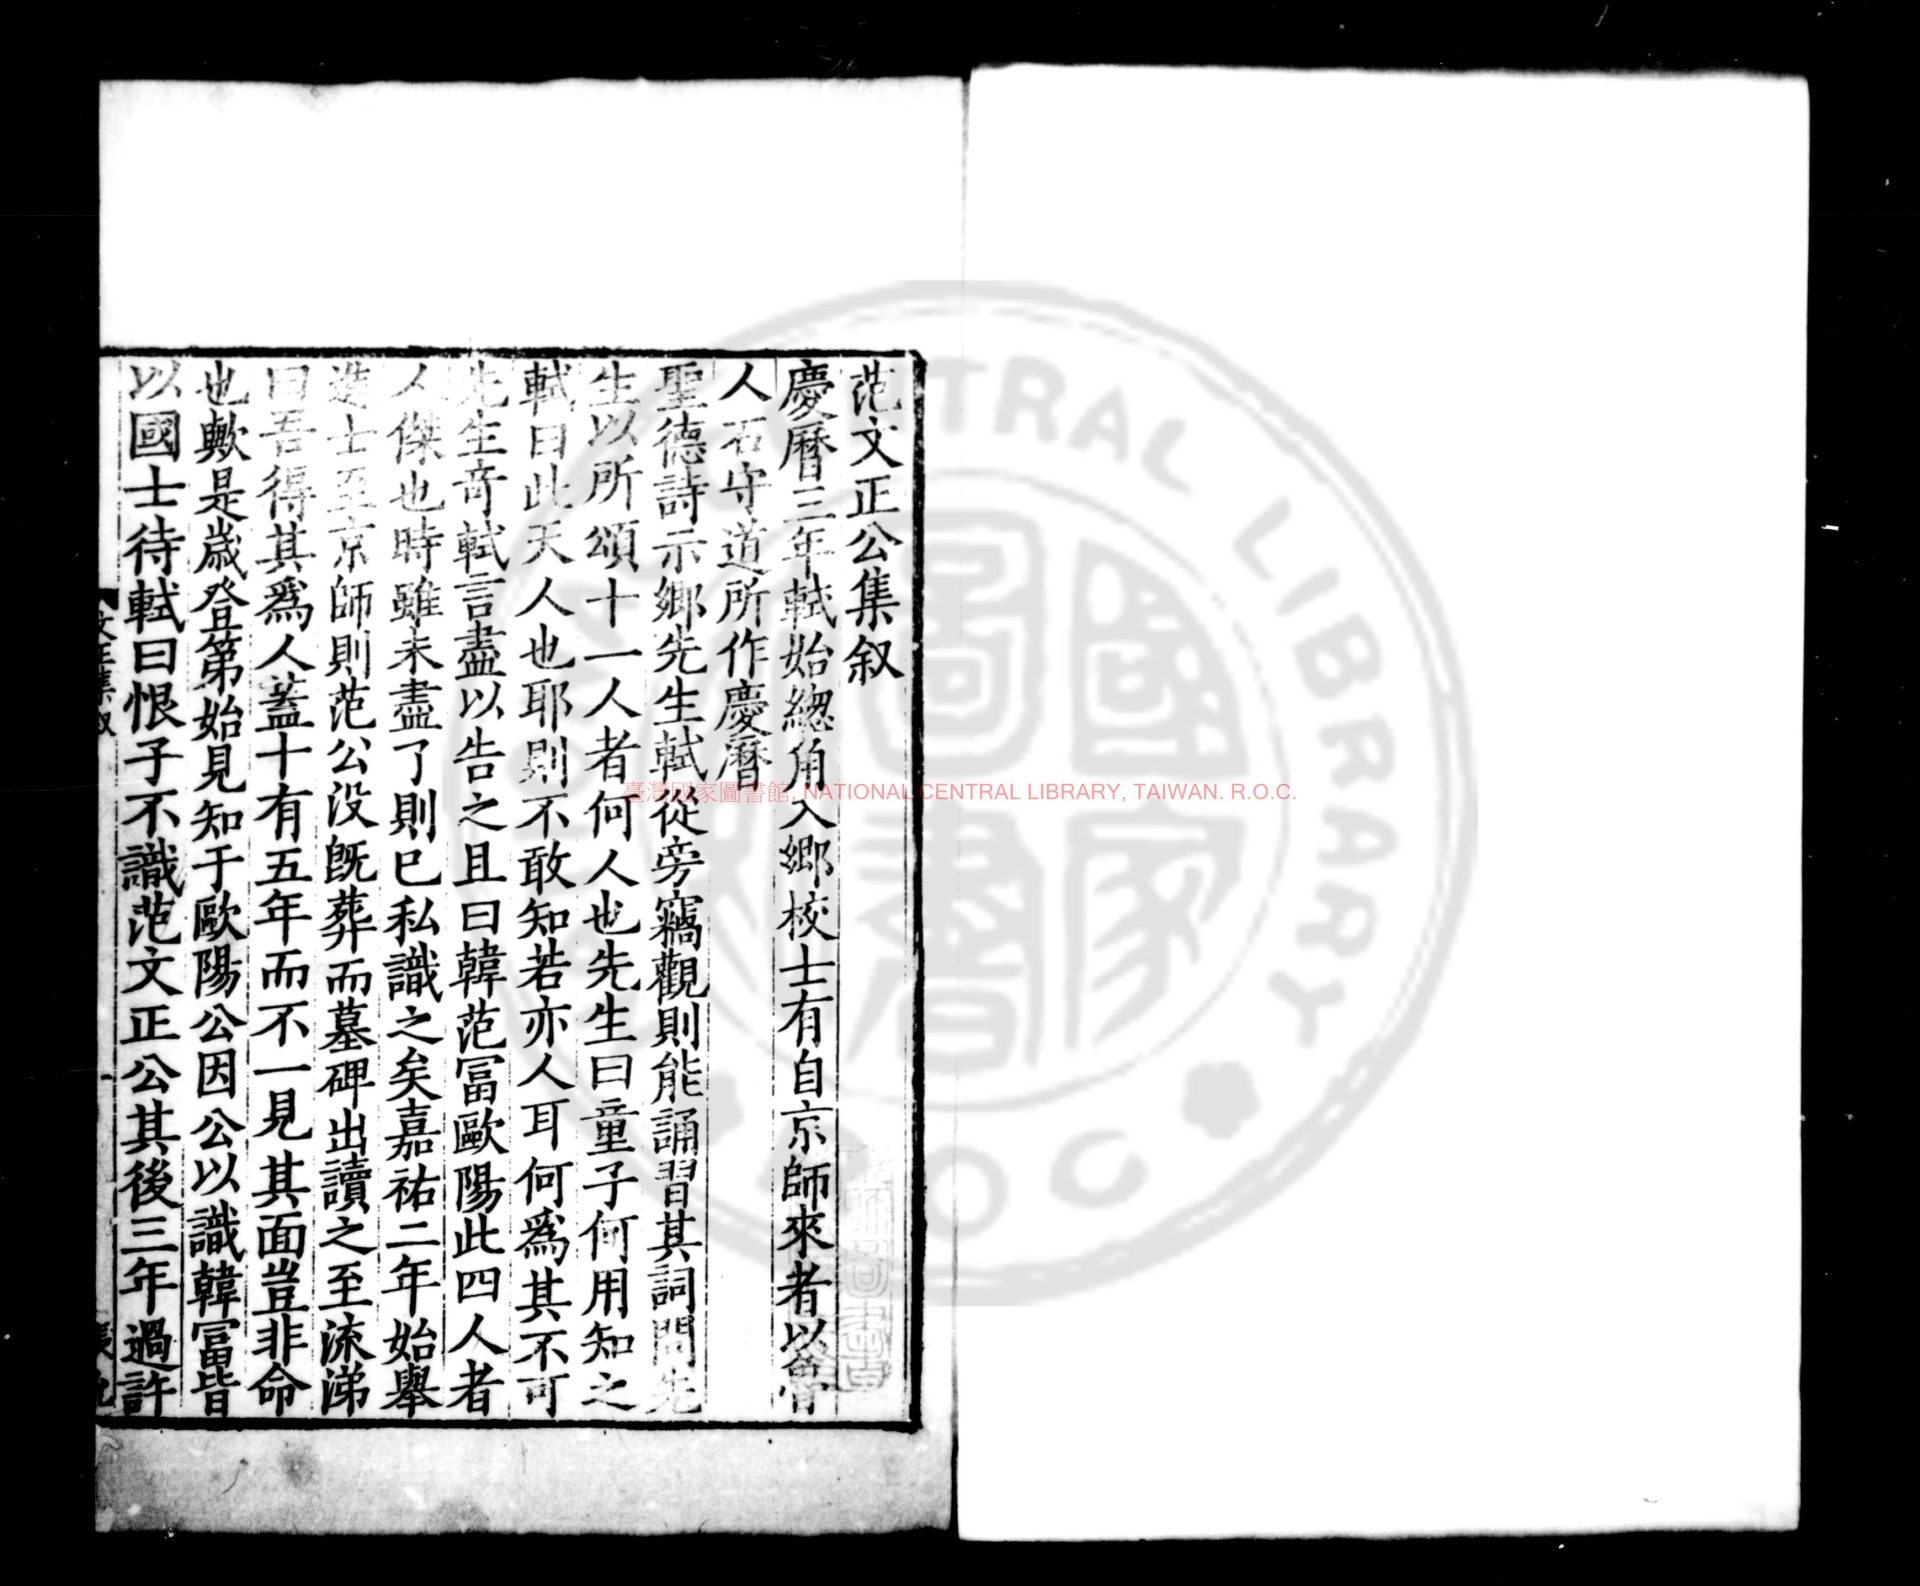 范文正公集叙
慶曆三年軾始緫角入鄉校士有自京師來者以魯
人石守道所作慶曆
聖德詩示鄉先生軾從旁竊觀則能誦習其詞問先
生以所頌十一人者何人也先生曰童子何用知之
軾曰此天人也耶則不敢知若亦人耳何爲其不可
先生竒軾言盡以告之且曰韓范冨歐陽此四人者
人傑也時雖未盡了則已私識之矣嘉祐二年始舉
進士至京師則范公没既葬而墓碑出讀之至流涕
曰吾得其爲人蓋十有五年而不一見其面豈非命
也歟是歲登第始見知于歐陽公因公以識韓冨皆
以國士待軾曰恨子不識范文正公其後三年過許
文正集叙
一
臺灣國家圖書館, NATIONAL CENTRAL LIBRARY, TAIWAN. R.O.C.